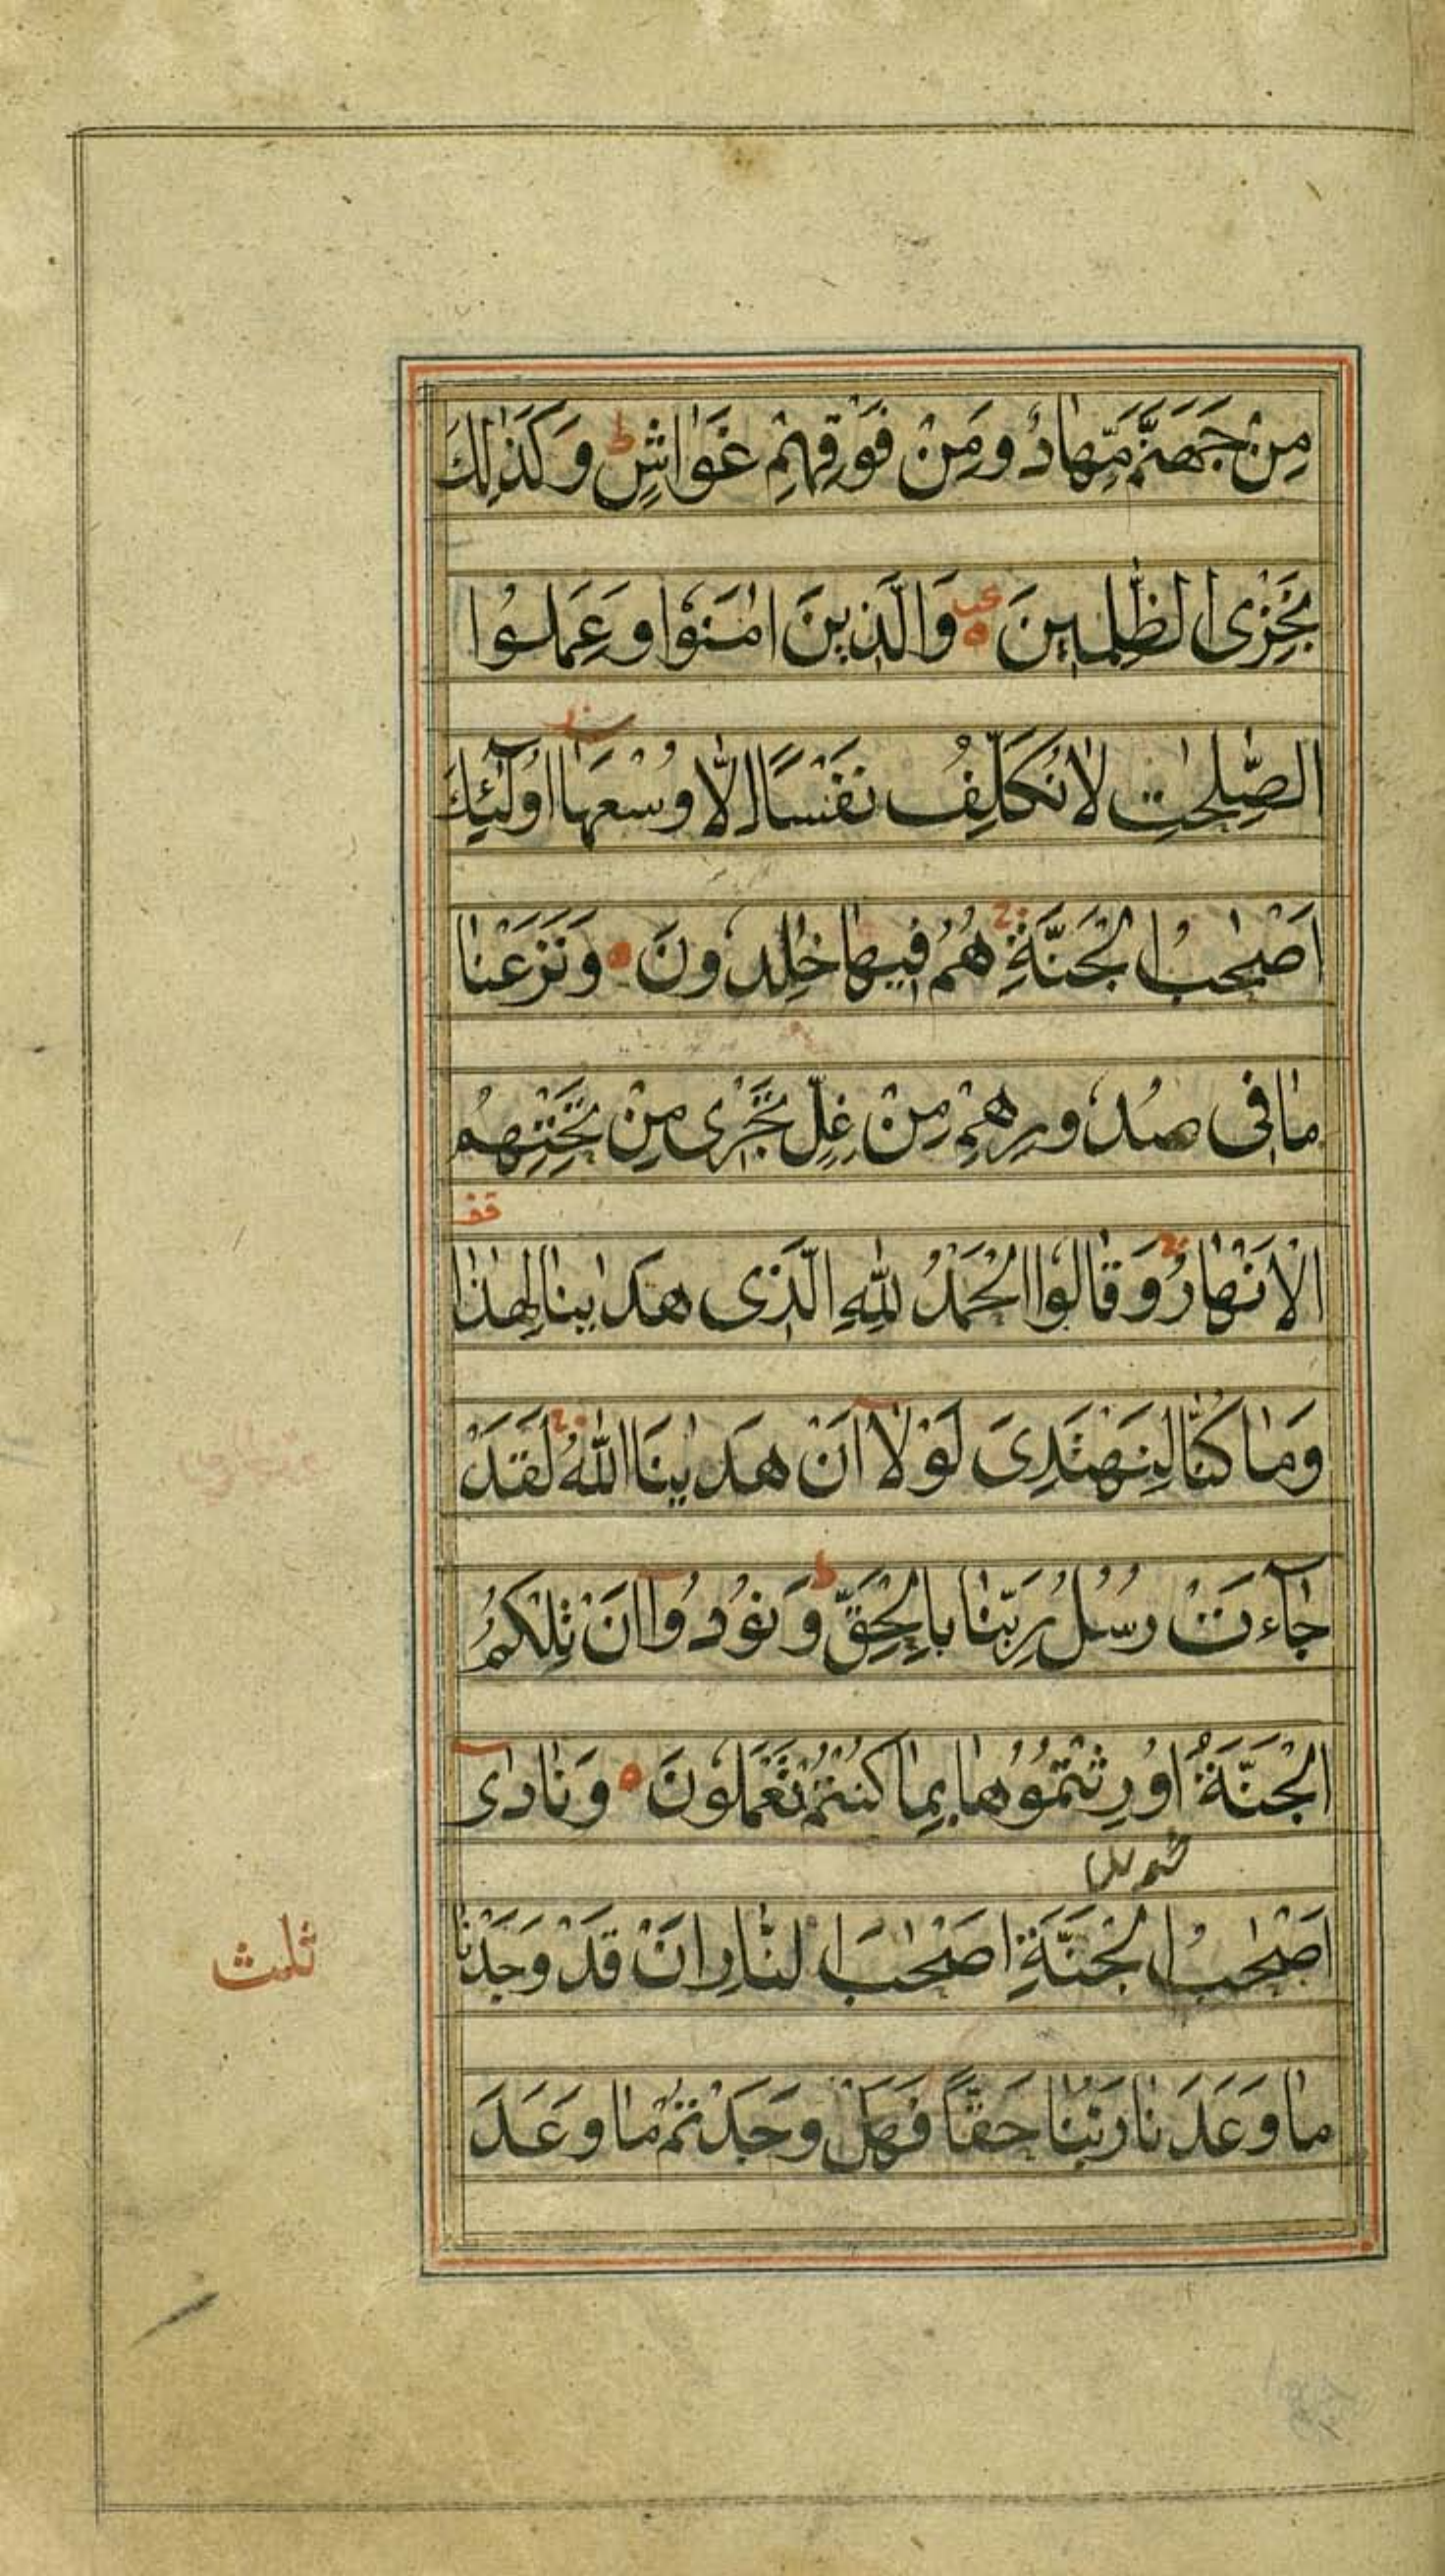 مِنْ جَهَنَّمَ مِهَادٌ وَمِنْ فَوْقِهِمْ غَوَاشٍ ط وَكَذٰلِكَ
نَجْزِى الظّٰلِمِينَ ه وَالَّذِينَ اٰمَنُوا وَعَمِلُوا
الصّٰلِحٰتِ لَا نُكَلِّفُ نَفْسًا اِلَّا وُسْعَهَا اُولٰٓئِكَ
اَصْحٰبُ الْجَنَّةِ ج هُمْ فِيهَا خٰلِدُونَ ه وَنَزَعْنَا
مَا فِى صُدُورِهِمْ مِنْ غِلٍّ تَجْرِى مِنْ تَحْتِهِمُ
قف
الْاَنْهَارُ ج وَقَالُوا الْحَمْدُ لِلّٰهِ الَّذِى هَدٰينَا لِهٰذَا
وَمَا كُنَّا لِنَهْتَدِىَ لَوْلَآ اَنْ هَدٰينَا اللّٰهُ ج لَقَدْ
جَآءَتْ رُسُلُ رَبِّنَا بِالْحَقِّ ط وَنُودُوٓا اَنْ تِلْكُمُ
الْجَنَّةُ اُورِثْتُمُوهَا بِمَا كُنْتُمْ تَعْمَلُونَ ه وَنَادٰىٓ
اَصْحٰبُ الْجَنَّةِ اَصْحٰبَ النَّارِ اَنْ قَدْ وَجَدْنَا
ثلث
مَا وَعَدَنَا رَبُّنَا حَقًّا فَهَلْ وَجَدْتُمْ مَا وَعَدَ